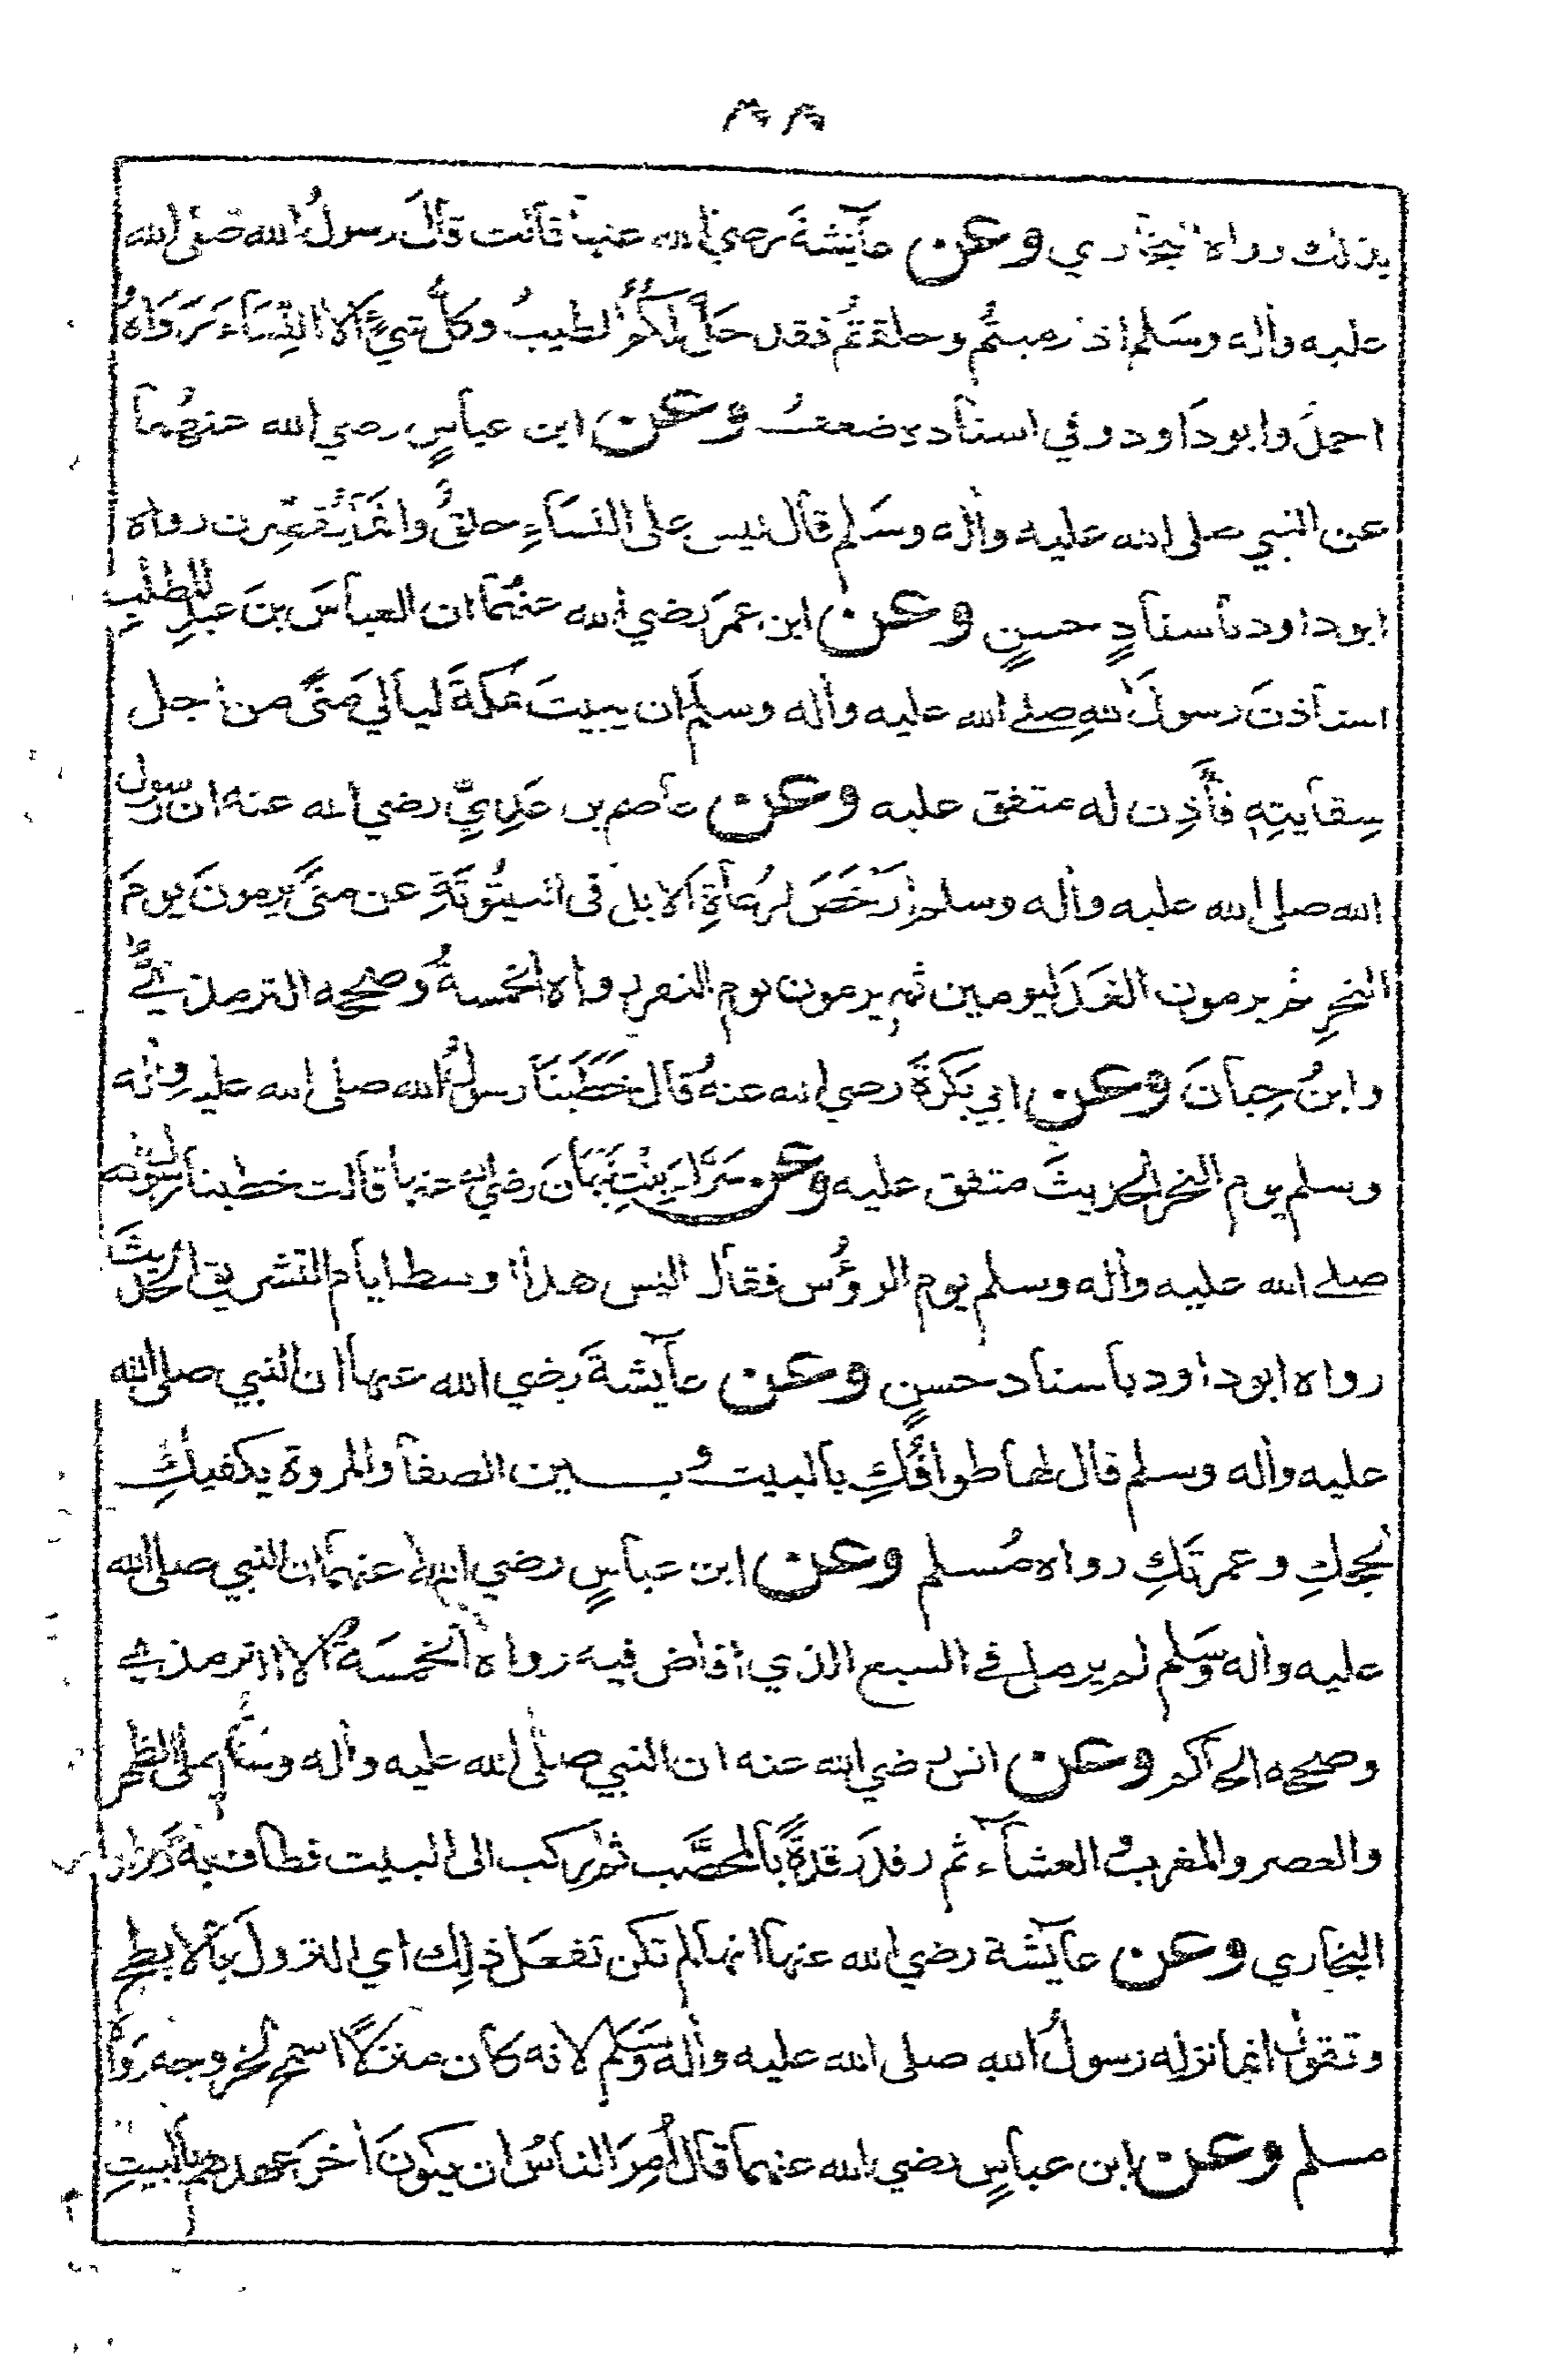 بذلك رواه البخاري وعن عآيشةَ رضي الله عنها قالت قال رسولُ الله صلى الله
عليه واله وسَلم اذا رميتُم وحلقتُم فقد حَلَّ لكمُ الطيبُ وكلُّ شيءٍ الا النِّسَاءَ رَوَاهُ
احمدُ وابو داود وفي اسناده ضعفٌ وعن ابن عباسٍ رضي الله عنهُما
عن النبي صلى الله عليه واله وسَلم قال ليس على النسَاءِ حلقٌ وانما يُقصِّرن رواه
ابو داود باسنادٍ حسنٍ وعن ابن عمرَ رضي الله عنهُما ان العباسَ بنَ عبدِ المطلبِ
استأذنَ رسولَ اللهِ صلى الله عليه واله وسلم ان يبيتَ بمكةَ ليالي مِنًى من اجل
سِقايتِهِ فأَذِن له متفق عليه وعن عاصم بن عَدِيٍّ رضي الله عنه ان رسول
الله صلى الله عليه واله وسلم ارخَصَ لرُعاةِ الابل في البيتُوتَةِ عن منًى يرمونَ يومَ
النحرِ ثم يرمون الغدَ ليومين ثم يرمون يوم النفر رواه الخمسةُ وصححه الترمذيُّ
وابنُ حِبانَ وعن ابي بَكرَةَ رضي الله عنهُ قال خطَبَنَا رسولُ الله صلى الله عليه واله
وسلم يوم النحر الحديثَ متفق عليه وعن سَرَّاءَ بِنْتِ نَبْهَانَ رضي الله عنها قالت خطبنا رسول الله
صلى الله عليه واله وسلم يوم الرؤُس فقال اليس هذا اوسط ايام التشريق الحديثَ
رواه ابو داود باسناد حسنٍ وعن عآيشةَ رضي الله عنها ان النبي صلى الله
عليه واله وسلم قال لها طوافُكِ بالبيت وبين الصفا والمروة يكفيكِ
لحجكِ وعمرتكِ رواه مُسلم وعن ابن عباسٍ رضي الله عنهما ان النبي صلى الله
عليه واله وسَلم لم يرمل في السبع الذي افاض فيه رواه الخمسَةُ الا الترمذي
وصححه الحاكم وعن انس رضي الله عنه ان النبي صلى الله عليه واله وسلم صلى الظهر
والعصر والمغرب والعشآء ثم رقد رَقدةً بالمحصَّب ثم ركب الى البيت فطاف به رواه
البخاري وعن عآيشة رضي الله عنها انها لم تكن تفعل ذلك اي النزول بالابطح
وتقول انما نزله رسولُ الله صلى الله عليه واله وسَلم لانه كان منزلا اسمح لخروجه رواه
مسلم وعن ابن عباسٍ رضي الله عنهما قال اُمِرَ الناسُ ان يكونَ اخرَ عهدهم بالبيتِ